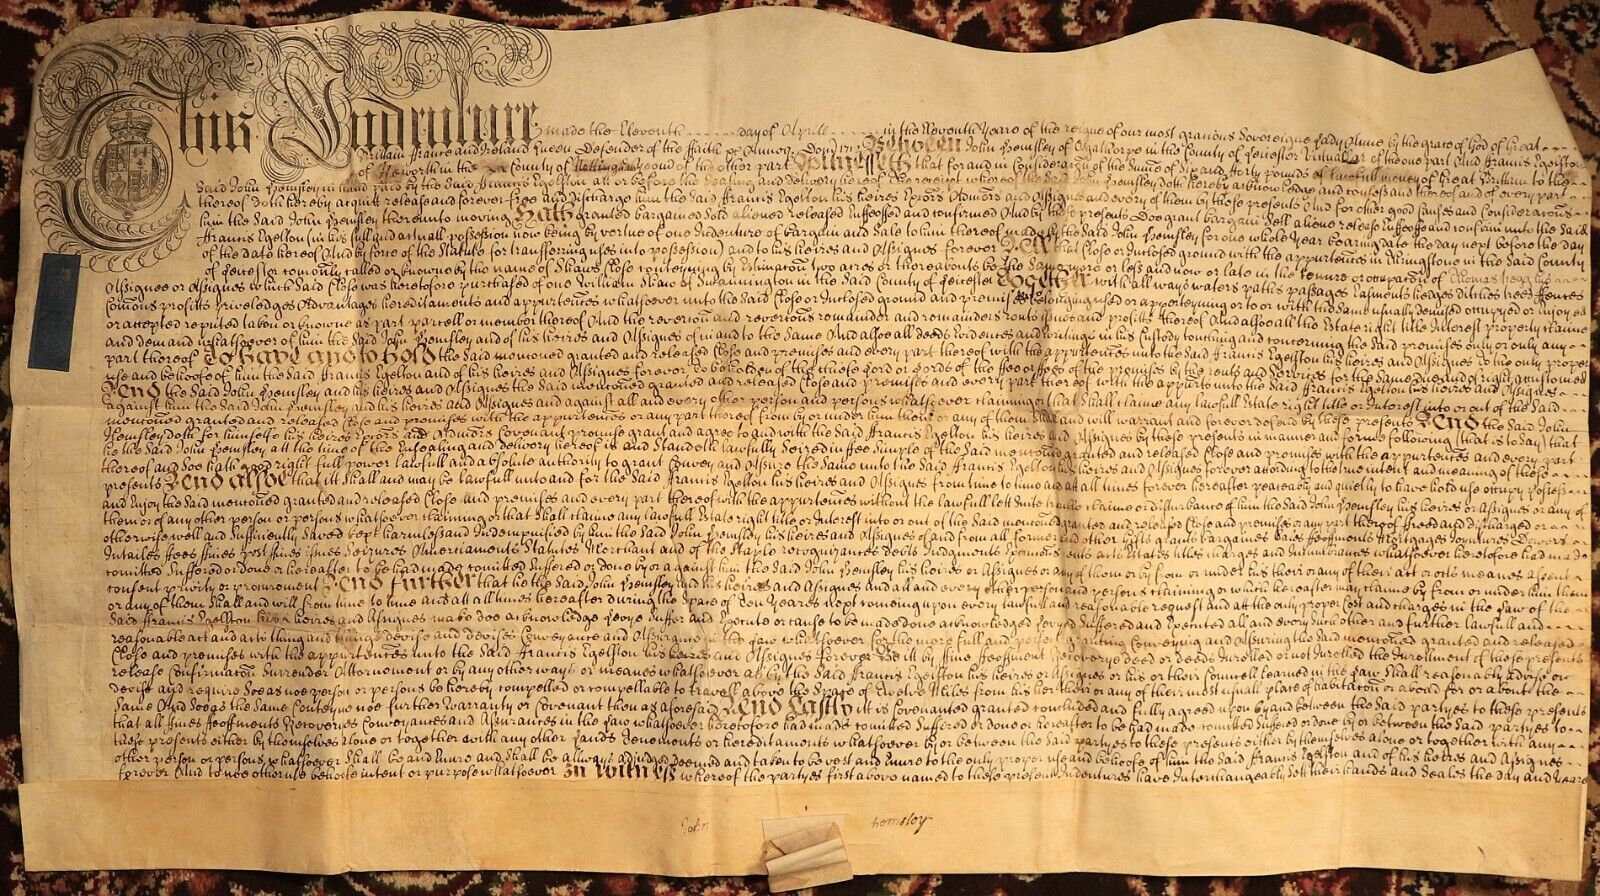 This Indenture made the Eleventh day of Aprill in the Eleventh Yeare of the reigne of our most gracious Sovereigne Lady Anne by the grace of God of Great
Brittain France and Ireland Queen Defender of the ffaith &c Annoq Dom 171 Between John Hemsley of in the County of Leicester of the one part And Francis Egelston
of in the County of Nottingham of the other part Witnesseth that for and in Consideration of the Summe of Six and fforty pounds of lawfull money of Great Brittain to the
Said John Hemsley in hand paid by the Said Francis Egelston att or before the Sealing and delivery hereof the receipt whereof the Said John Hemsley doth hereby acknowledge and confesse and thereof and of every part
thereof doth hereby acquitt release and forever free and discharge him the Said Francis Egelston his heires Exors Admors and Assignes and every of them by these presents And for other good Causes and Consideracons
him the Said John Hemsley thereunto moving Hath granted bargained Sold aliened released Enffeoffed and confirmed And by these presents Doe grant bargain Sell aliene release Enffeoffe and confirm unto the Said
Francis Egelston (in his full and actuall possession now being by vertue of one Indenture of bargain and Sale to him thereof made by the Said John Hemsley for one whole Year bearing date the day next before the day
of the date hereof And by force of the Statute for transferring uses into possession) and to his heires and Assignes forever All that Close or Inclosed ground with the appurtences in in the Said County
of Leicester comonly called or knowne by the name of Shaws Close conteyning by Estimatcon two acres or thereabouts be the Same more or less and now or late in the tenure or occupacon of Thomas his
Assignee or Assignes which Said Close was heretofore purchased of one William Shaw of in the Said County of Leicester Together with all ways waters paths passages Easments hedges ditches trees ffences
Comons profitts priveledges Advantages hereditaments and appurtences whatsoever unto the Said Close or Inclosed ground and premises belonging used or apperteyning or to or with the Same usually demised occupyed or enjoyed
or accepted reputed taken or knowne as part parcell or member thereof And the revertion and revertions remainder and remainders rents issues and profitts thereof And alsoe all the Estate right title Interest property claime
and demand whatsoever of him the Said John Hemsley and of his heires and Assignes of in and to the Same And alsoe all deeds Evidences and writings in his Custody touching and concerning the Said premises only or only any
part thereof To have and to hold the Said mencioned granted and released Close and premises and every part thereof with the appurtences unto the Said Francis Egelston his heires and Assignes To the only proper
use and behoofe of him the Said Francis Egelston and of his heires and Assignes forever To be holden of the chiefe Lord or Lords of the ffee or ffees of the premises by the rents and Services for the Same due and of right accustomed
And the Said John Hemsley and his heires and Assignes the Said mencioned granted and released Close and premises and every part thereof with the appurts unto the Said Francis Egelston his heires and Assignes
against him the Said John Hemsley and his heires and Assignes and against all and every other person and persons whatsoever claiming or that Shall claime any lawfull Estate right title or Interest into or out of the Said
mencioned granted and released Close and premises with the appurtences or any part thereof from by or under him them or any of them Shall and will warrant and forever defend by these presents And the Said John
Hemsley doth for himselfe his heires Exors and Admors Covenant promise grant and agree to and with the Said Francis Egelston his heires and Assignes by these presents in manner and forme following (that is to Say) that
he the Said John Hemsley att the time of the Ensealing and delivery hereof is and Standeth lawfully Seized in ffee Simple of the Said mencioned granted and released Close and premises with the appurtences and every part
thereof and Soe hath good right full power lawfull and absolute authority to grant Convey and Assure the Same unto the Said Francis Egelston his heires and Assignes forever according to the true intent and meaning of these
presents And alsoe that itt Shall and may be lawfull unto and for the Said Francis Egelston his heires and Assignes from time to time and att all times forever hereafter peaceably and quietly to have hold use occupy Possess
and Enjoy the Said mencioned granted and released Close and premises and every part thereof with the appurtences without the lawfull lett Suite claime or disturbance of him the Said John Hemsley his heires or Assignes or any of
them or of any other person or persons whatsoever claiming or that Shall claime any lawfull Estate right title or Interest into or out of the Said mencioned granted and released Close and premises or any part thereof ffreed and discharged or
otherwise well and Sufficiently Saved kept harmless and Indempnified by him the Said John Hemsley his heires and Assignes of and from all former and other Gifts grants bargaines Sales ffeoffments Mortgages Joyntures Dowers
Intailes ffees ffines post ffines issues Seizures Amerciaments Statutes Merchant and of the Staple recognizances debts Judgments Execucons rents Estates titles charges and Incumbrances whatsoever heretofore had made
comitted Suffered or done or hereafter to be had made comitted Suffered or done by or against him the Said John Hemsley his heires or Assignes or any of them or by from or under his their or any of their act or acts meanes assent
consent privity or procurement And further that he the Said John Hemsley and his heires and Assignes and all and every other person and persons claiming or which hereafter may claime by from or under him them
or any of them Shall and will from time to time and att all times hereafter during the Space of Ten Yeares next comeing upon every lawfull and reasonable request and att the only proper Cost and charges in the Law of the
Said Francis Egelston his heires and Assignes make doe acknowledge Levye Suffer and Execute or cause to be made done acknowledged Levyed Suffered and Executed all and every Such other and further lawfull and
reasonable act and acts thing and things devise and devises Conveyance and Assurance in the Law whatsoever for the more full and perfect granting Conveying and Assuring the Said mencioned granted and released
Close and premises with the appurtences unto the Said Francis Egelston his heires and Assignes forever Be itt by ffine ffeoffment Recoverye deed or deeds Inrolled or not Inrolled the Inrollment of these presents
release Confirmacon Surrender Attornment or by any other ways or meanes whatsoever as by the Said Francis Egelston his heires or Assignes or his or their Councell learned in the Law Shall reasonably Advise or
devise and require Soe as noe person or persons be hereby compelled or compellable to travell above the Space of Twelve Miles from his her their or any of their most usuall place of habitacon or aboad for or about the
Same And Soe as the Same Conteyne noe further Warranty or Covenant then as aforesaid And Lastly itt is Covenanted granted concluded and fully agreed upon by and between the Said partyes to these presents
that all ffines ffeoffments Recoveries Conveyances and Assurances in the Law whatsoever heretofore had made comitted Suffered or done or hereafter to be had made comitted Suffered or done by or between the Said partyes to
these presents either by themselves alone or together with any other Lands Tenements or hereditaments whatsoever by or between the Said partyes to these presents either by themselves alone or together with any
other person or persons whatsoever Shall be and Enure and Shall be allways adjudged deemed and taken to be vest and Enure to the only proper use and behoofe of him the Said Francis Egelston and of his heires and Assignes
forever And to noe other use behoofe intent or purpose whatsoever In Witness whereof the partyes first above named to these present Indentures have Interchangeably Sett their hands and Seales the day and Yeare
John hemsley